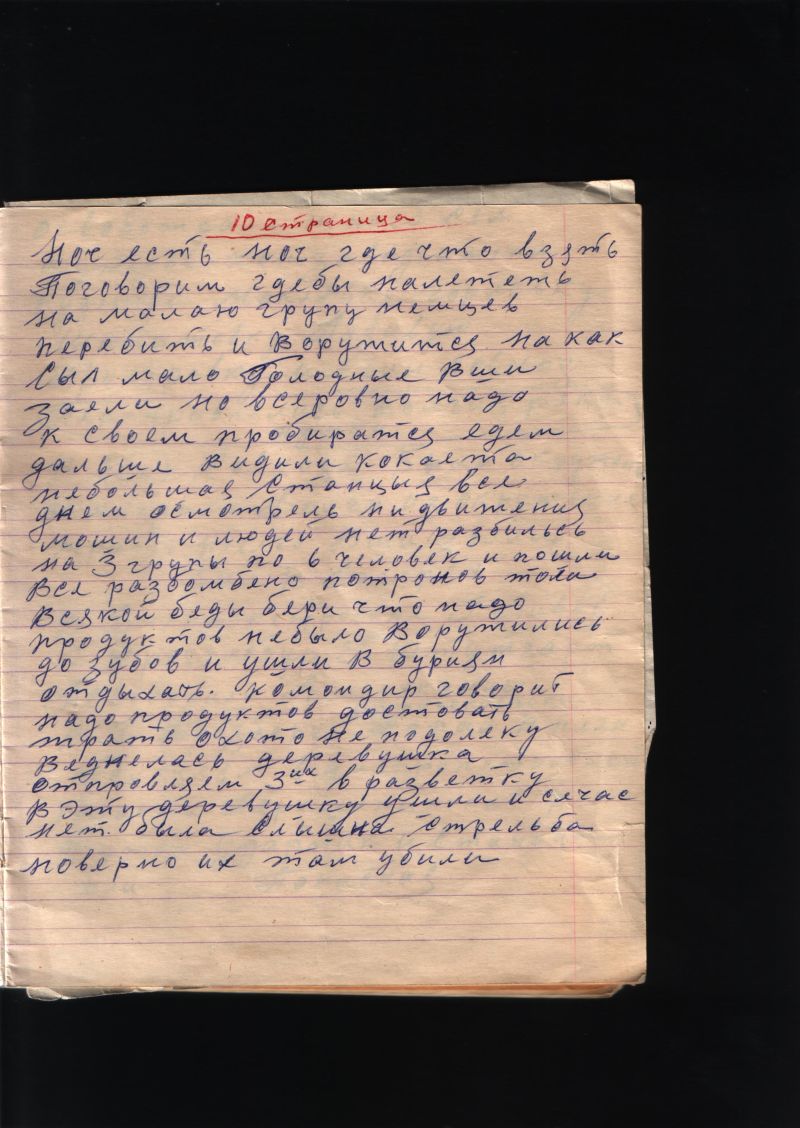 10 страница
Ноч есть ноч где что взять
Поговорим гдебы налететь
на малаю групу немцев
перебить и Воружится на как
Сыл мало Голодные Вши
заели но всеровно надо
к своем пробиратся едем
дальше Видили кокаета
небольшая Станцыя все
днем осмотрель ни движения
мошин и людей нет разбильсь
на 3 групы по 6 человек и пошли
Все разбомбено потронов тола
Всякой беды бери что надо
продуктов небыло Воружились
до зубов и ушли В буриян
отдыхать. Командир говорит
надо продуктов достовать
жрать охото не подолеку
Веднелась деревушка
отпровляем 3их в разветку
В эту деревушку ушли и сячас
нет. была Слышна Стрельба
новерно их там убили